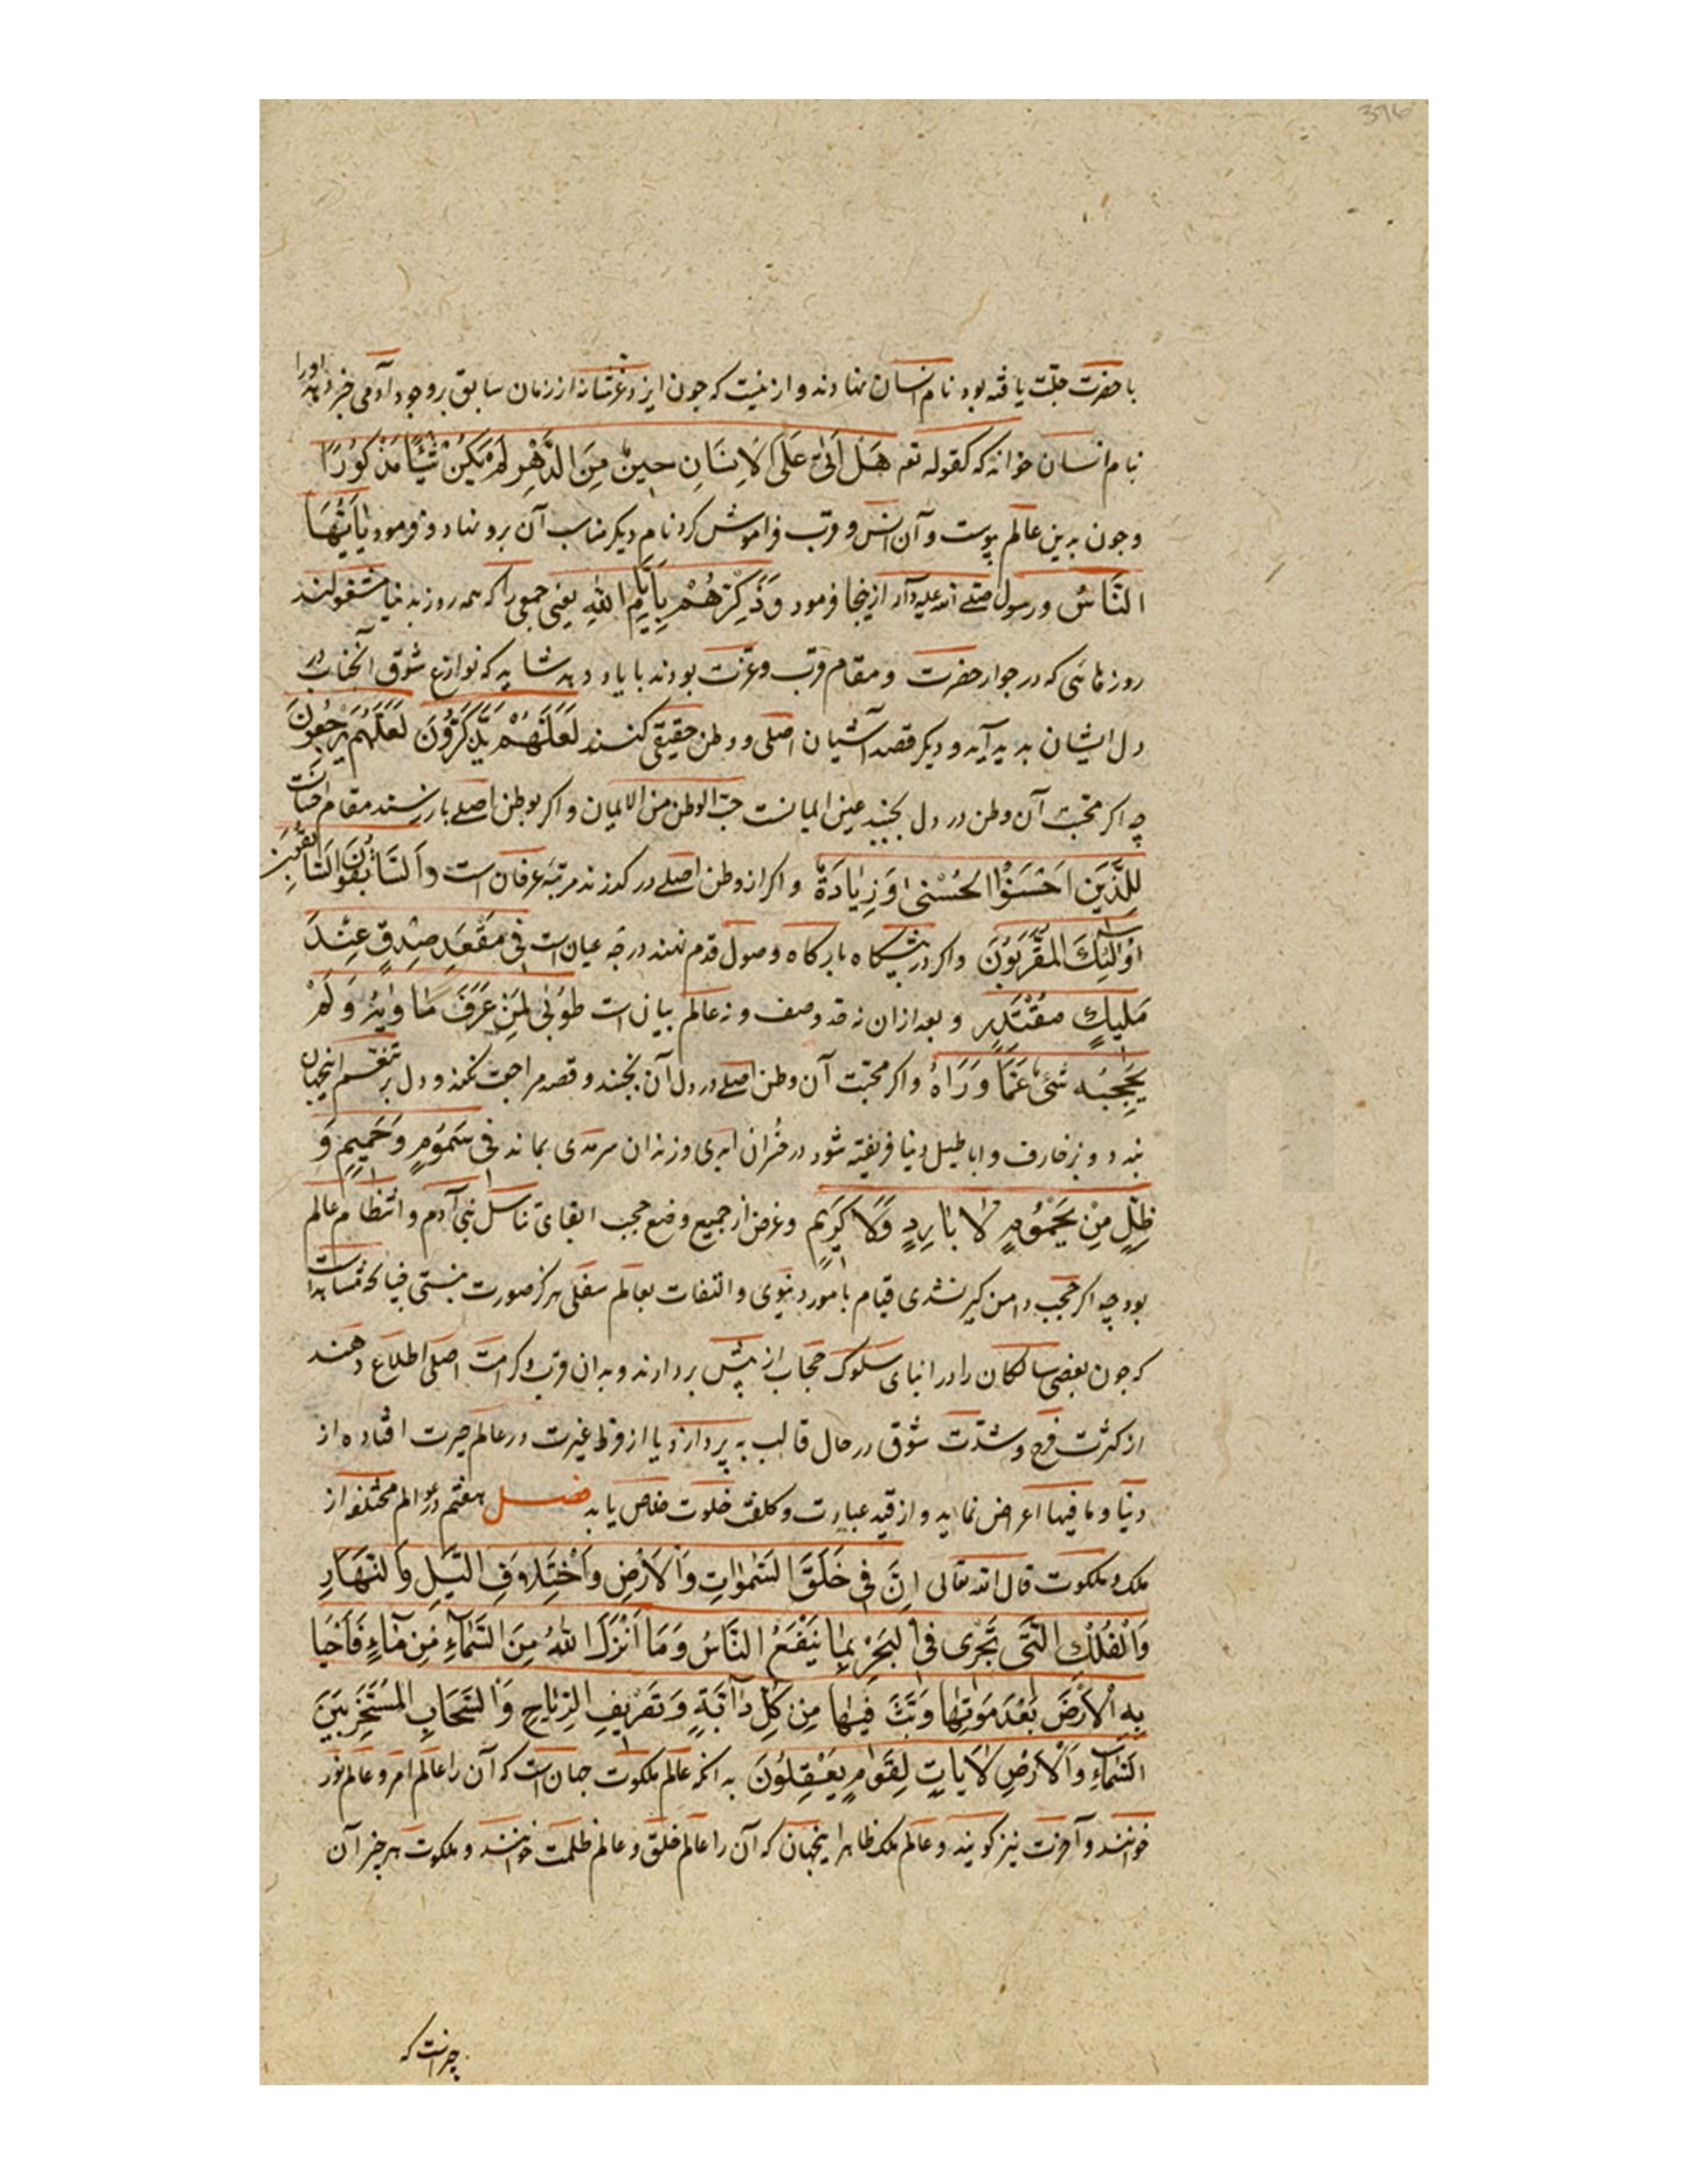 396
با حضرت جلت یافته بود نام انسان نهادند و ازینست که چون ایزد عز شانه از زمان سابق بر وجود آدمی خبر دهد او را
بنام انسان خواند که کقوله تعه هَل اَتیٰ عَلَی الاِنسَانِ حِینٌ مِنَ الدَّهرِ لَم یَکُن شَیئًا مَذکُورًا
و چون بدین عالم پیوست و آن انس و قرب فراموش کرد نام دیگر مناسب آن برو نهاد و فرمود یٰاَیُّهَا
النَّاسُ و رسول صلی الله علیه وآله ازینجا فرمود وَذَکِّرهُم بِاَیّٰامِ اللهِ یعنی جمعی را که همه روز بدنیا مشغولند
روزهائی که در جوار حضرت و مقام قرب و عزت بودند با یاد دهد شاید که نوازع شوق آنجناب در
دل ایشان پدید آید و دیگر قصد آشیان اصلی و وطن حقیقی کنند لَعَلَّهُم یَتَذَکَّرُونَ لَعَلَّهُم یَرجِعُونَ
چه اگر محبت آن وطن در دل بجنبد عین ایمانست حب الوطن من الایمان و اگر بوطن اصلی باز رسند مقام احسانست
لِلَّذِینَ اَحسَنُوا الحُسنیٰ وَزِیَادَةٌ و اگر از وطن اصلی در گذرند مرتبه عرفان است وَالسّٰابِقُونَ السّٰابِقُونَ
اُولٰئِکَ المُقَرَّبُونَ و اگر در پیشگاه بارگاه وصول قدم نهند درجه عیان است فی مَقعَدِ صِدقٍ عِندَ
مَلیکٍ مُقتَدِرٍ و بعد ازان نه حد وصف و نه عالم بیان است طُوبیٰ لِمَن عَرَفَ مَاوٰیهُ وَلَم
یَحجُبهُ شَیءٌ عَمّٰا وَرَاهُ و اگر محبت آن وطن اصلی در دل آن بجنبد و قصد مراجعت نکند و دل بر تنعم اینجهان
بندد و بزخارف و اباطیل دنیا فریفته شود در خسران ابدی و زندان سرمدی بماند فی سَمُومٍ وَحَمیمٍ وَ
ظِلٍّ مِن یَحمُومٍ لاٰ بٰارِدٍ وَلاٰ کَرِیمٍ و غرض از جمیع وضع حجب ابقای تناسل بنی آدم و انتظام عالم
بود چه اگر حجب دامن گیر نشدی قیام بامور دنیوی و التفات بعالم سفلی هرگز صورت نبستی
که چون بعضی سالکان را در اثنای سلوک حجاب از پیش بردارند و بدان قرب و کرامت اصلی اطلاع دهند
از کثرت فرح و شدت شوق در حال قالب به پردازد یا از فرط غیرت در عالم حیرت افتاده از
دنیا و ما فیها اعراض نماید و از قید عبارت و کلفت خلوت خلاص یابد فصل هفتم در عوالم مختلفه از
ملک و ملکوت قال الله تعالی اِنَّ فی خَلقِ السَّمٰوٰاتِ وَالاَرضِ وَاختِلاٰفِ اللَّیلِ وَالنَّهَارِ
وَالفُلکِ الَّتی تَجری فی البَحرِ بِمٰا یَنفَعُ النَّاسَ وَمَا اَنزَلَ اللهُ مِنَ السَّمٰاءِ مِن مٰاءٍ فَاَحیَا
بِهِ الاَرضَ بَعدَ مَوتِهٰا وَبَثَّ فیهٰا مِن کُلِّ دٰابَّةٍ وَتَصریفِ الرِّیٰاحِ وَالسَّحَابِ المُسَخَّرِ بَینَ
السَّمٰاءِ وَالاَرضِ لاٰیَاتٍ لِقَومٍ یَعقِلُونَ بدانکه عالم ملکوت جهان است که آن را عالم امر و عالم نور
خوانند و آخرت نیز گویند و عالم ملک ظاهر اینجهان که آن را عالم خلق و عالم ظلمت خوانند و ملکوت هر چیز آن
چیزاست که